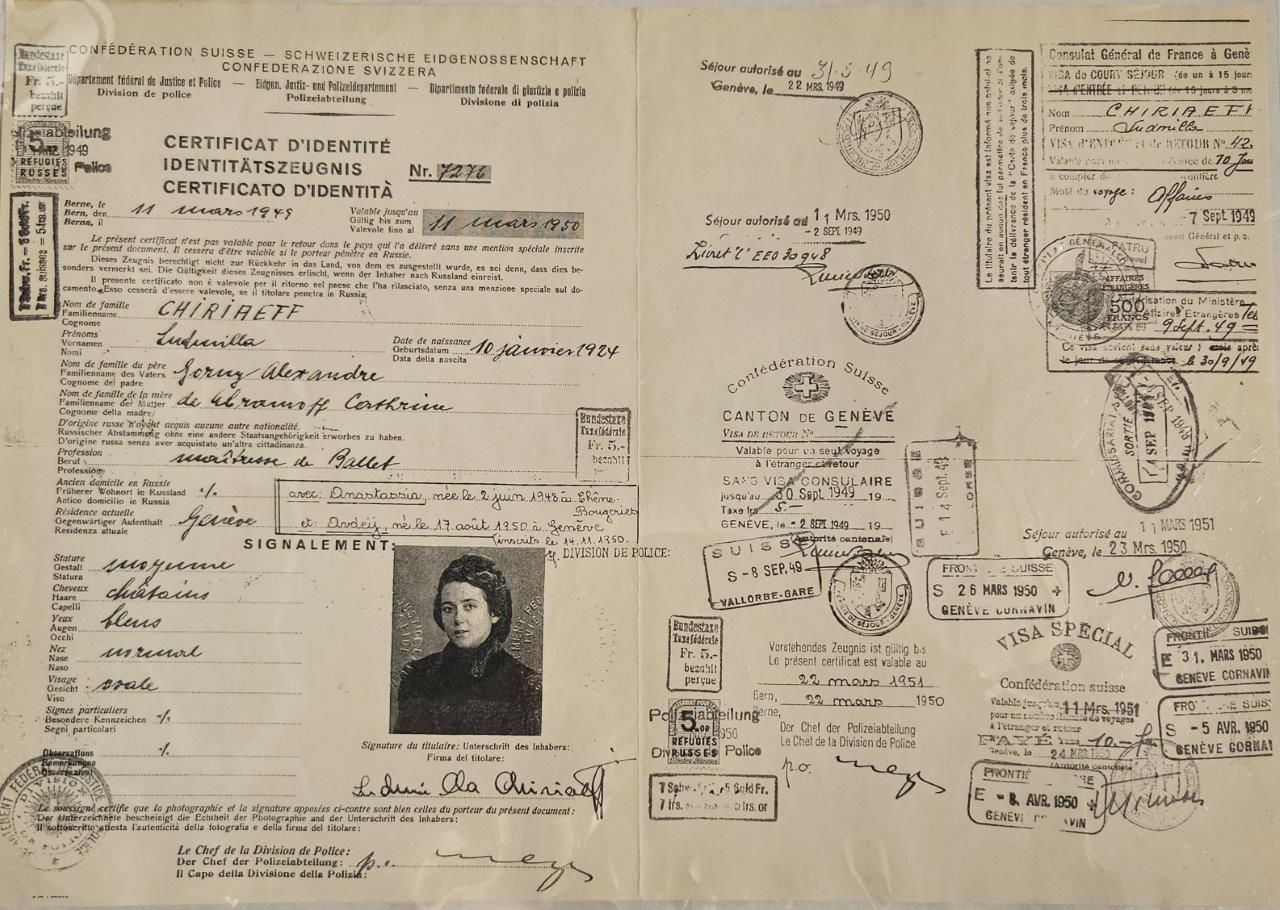 CONFÉDÉRATION SUISSE — SCHWEIZERISCHE EIDGENOSSENSCHAFT
CONFEDERAZIONE SVIZZERA
Département fédéral de Justice et Police — Eidgen. Justiz- und Polizeidepartement — Dipartimento federale di giustizia e polizia
Division de police Polizeiabteilung Divisione di polizia
Bundestaxe
Taxe fédérale
Fr. 5.-
bezahlt
perçue
1949
5
RÉFUGIÉS
RUSSES
Police
CERTIFICAT D'IDENTITÉ
IDENTITÄTSZEUGNIS Nr. 7276
CERTIFICATO D'IDENTITÀ
Berne, le
Bern, den 11 mars 1949
Berna, il
Valable jusqu'au
Gültig bis zum 11 mars 1950
Valevole fino al
Le présent certificat n'est pas valable pour le retour dans le pays qui l'a délivré sans une mention spéciale inscrite
sur le présent document. Il cessera d'être valable si le porteur pénètre en Russie.
Dieses Zeugnis berechtigt nicht zur Rückkehr in das Land, von dem es ausgestellt wurde, es sei denn, dass dies be-
sonders vermerkt sei. Die Gültigkeit dieses Zeugnisses erlischt, wenn der Inhaber nach Russland einreist.
Il presente certificato non è valevole per il ritorno nel paese che l'ha rilasciato, senza una menzione speciale sul do-
cumento. Esso cesserà d'essere valevole, se il titolare penetra in Russia.
Nom de famille
Familienname CHIRIAEFF
Cognome
Prénoms
Vornamen Ludmilla
Nomi
Date de naissance
Geburtsdatum 10 janvier 1924
Data della nascita
Nom de famille du père
Familienname des Vaters Gorny Alexandre
Cognome del padre
Nom de famille de la mère
Familienname der Mutter de Abramoff Cathrine
Cognome della madre
D'origine russe n'ayant acquis aucune autre nationalité.
Russischer Abstammung ohne eine andere Staatsangehörigkeit erworben zu haben.
D'origine russa senza aver acquistato un'altra cittadinanza.
Bundestaxe
Taxe fédérale
Fr. 5.-
bezahlt
Profession
Beruf maîtresse de Ballet
Professione
Ancien domicile en Russie
Früherer Wohnort in Russland -/.
Antico domicilio in Russia
avec: Anastassia, née le 2 juin 1948 à Chêne-
Bougeries
Résidence actuelle
Gegenwärtiger Aufenthalt Genève
Residenza attuale
et: Avdeij, né le 17 août 1950 à Genève
(inscrits le 14.11.1950.
DIVISION DE POLICE:
SIGNALEMENT:
Stature
Gestalt moyenne
Statura
Cheveux
Haare châtains
Capelli
Yeux
Augen bleus
Occhi
Nez
Nase normal
Naso
Visage
Gesicht ovale
Viso
Signes particuliers
Besondere Kennzeichen -/.
Segni particolari
Observations
Bemerkungen -/.
Osservazioni
Signature du titulaire: Unterschrift des Inhabers:
Firma del titolare:
Ludmilla Chiriaeff
Le soussigné certifie que la photographie et la signature apposées ci-contre sont bien celles du porteur du présent document:
Der Unterzeichnete bescheinigt die Echtheit der Photographie und der Unterschrift des Inhabers:
Il sottoscritto attesta l'autenticità della fotografia e della firma del titolare:
Le Chef de la Division de Police:
Der Chef der Polizeiabteilung: p.o.
Il Capo della Divisione della Polizia:
Séjour autorisé au 31-5-49
Genève, le 22 MRS. 1949
Séjour autorisé au 11 Mrs. 1950
- 2 SEPT. 1949
Livret "C" EEO 30948
Confédération Suisse
CANTON DE GENÈVE
VISA DE RETOUR No
Valable pour un seul voyage
à l'étranger et retour
SANS VISA CONSULAIRE
jusqu'au 30 Sept. 1949 19
Taxe frs 5.-
GENÈVE, le - 2 SEPT. 1949 19
(Autorité cantonale)
SUISSE
S - 8 SEP. 49
VALLORBE-GARE
SUISSE
E 14 Sept. 49
FRONT SUISSE
S 26 MARS 1950
GENÈVE CORNAVIN
Bundestaxe
Taxe fédérale
Fr. 5.-
bezahlt
perçue
Vorstehendes Zeugnis ist gültig bis
Le présent certificat est valable au
22 mars 1951
Bern, 22 mars 1950
Berne,
Polizeiabteilung
5
RÉFUGIÉS
RUSSES
Police
Der Chef der Polizeiabteilung
Le Chef de la Division de Police
p.o.
Consulat Général de France à Genè
VISA de COURT SÉJOUR (de un à 15 jours
Nom CHIRIAEFF
Prénom Ludmilla
VISA D'ENTRÉE et de RETOUR No 42.
à compter du
Motif du voyage: Affaires
7 Sept. 1949
AFFAIRES
ÉTRANGÈRES
500
FRANCS
9 Sept. 49
le 30/9/49
COMMISSARIAT
SORTIE
14 SEP 1949
Séjour autorisé au 11 MARS 1951
Genève, le 23 Mrs. 1950
VISA SPÉCIAL
Confédération suisse
Valable jusqu'au 11 Mrs. 1951
à l'étranger et retour
PAYÉ Taxe 10.-
Genève, le 24 MRS. 1950
(Autorité cantonale)
FRONTIÈ SUISS
E 31. MARS 1950
GENÈVE CORNAVIN
SUISS
S - 5 AVR. 1950
GENÈVE CORNA
FRONTIÈ SSE
E - 8. AVR. 1950